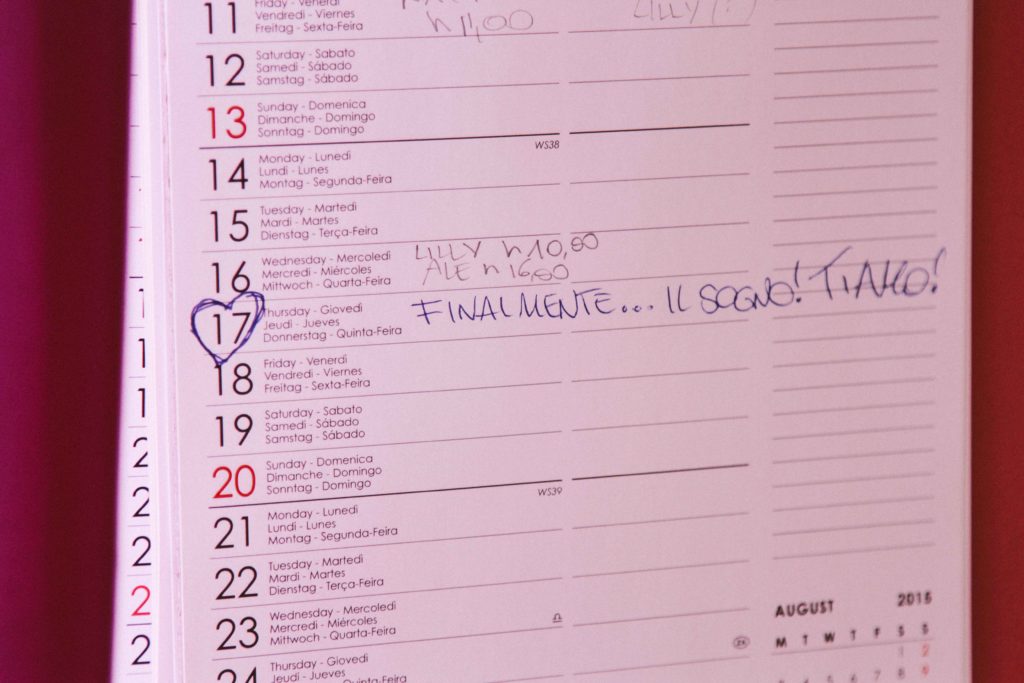 11 Friday - Venerdì
Vendredi - Viernes
Freitag - Sexta-Feira
h 11,00
LILLY (?)
12 Saturday - Sabato
Samedi - Sábado
Samstag - Sábado
13 Sunday - Domenica
Dimanche - Domingo
Sonntag - Domingo
WS38
14 Monday - Lunedì
Lundi - Lunes
Montag - Segunda-Feira
15 Tuesday - Martedì
Mardi - Martes
Dienstag - Terça-Feira
16 Wednesday - Mercoledì
Mercredi - Miércoles
Mittwoch - Quarta-Feira
LILLY h 10,00
ALE h 16,00
17 Thursday - Giovedì
Jeudi - Jueves
Donnerstag - Quinta-Feira
FINALMENTE... IL SOGNO! TIAMO!
18 Friday - Venerdì
Vendredi - Viernes
Freitag - Sexta-Feira
19 Saturday - Sabato
Samedi - Sábado
Samstag - Sábado
20 Sunday - Domenica
Dimanche - Domingo
Sonntag - Domingo
WS39
21 Monday - Lunedì
Lundi - Lunes
Montag - Segunda-Feira
22 Tuesday - Martedì
Mardi - Martes
Dienstag - Terça-Feira
23 Wednesday - Mercoledì
Mercredi - Miércoles
Mittwoch - Quarta-Feira
24 Thursday - Giovedì
Jeudi - Jueves
Donnerstag - Quinta-Feira
AUGUST 2015
M T W T F S S
1 2
7 8 9